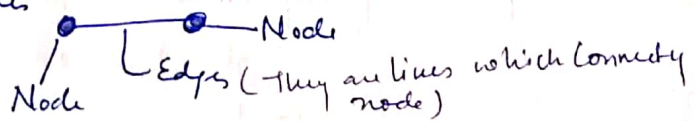 Node
Edges (They are lines which Connects
node)
Node